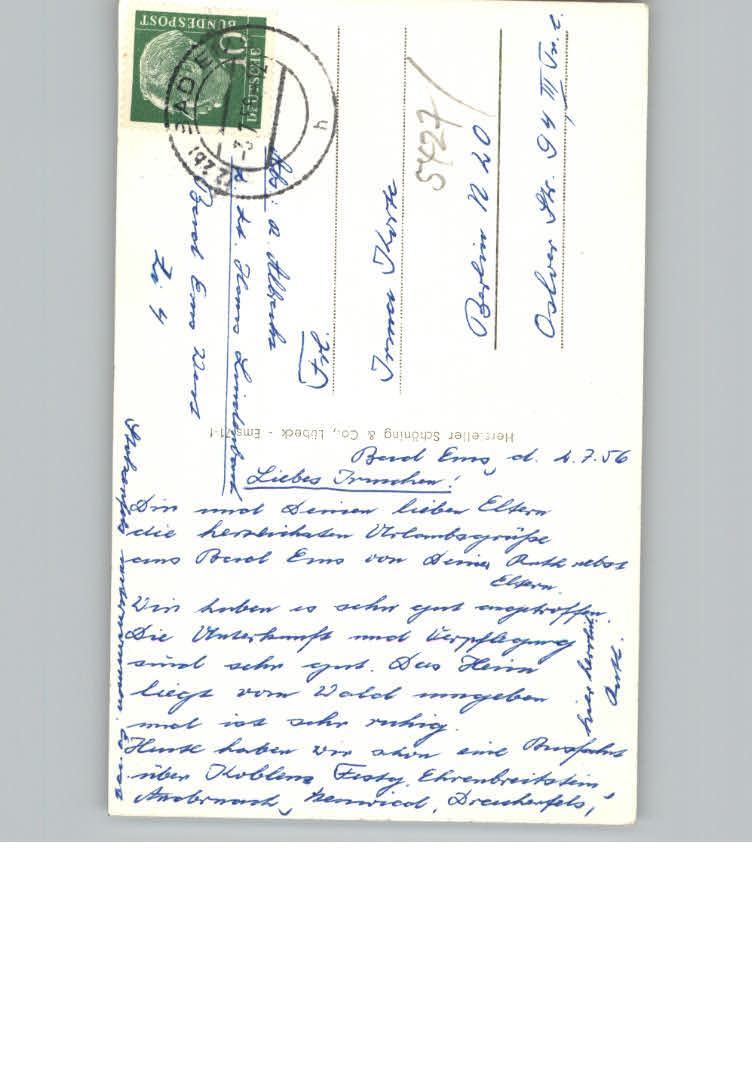 Bad Ems, d. 2.7.56
Liebes Irmchen!
Dir und Deinen lieben Eltern
die herzlichsten Urlaubsgrüße
aus Bad Ems von Deiner Ruth nebst
Eltern.
Wir haben es sehr gut angetroffen.
Die Unterkunft und Verpflegung
sind sehr gut. Das Heim
liegt vom Wald umgeben
und ist sehr ruhig.
Heute haben wir schon eine Busfahrt
über Koblenz Festg. Ehrenbreitstein,
Andernach, Neuwied, Drachenfels,
unternommen. Es ist
hier herrlich
Ruth.
Abs: R. Albrecht
z. Zt. Haus Lindenbach
Bad Ems West
Zi. 4
Frl.
Irma Korte
Berlin N 20
Osloer Str. 94 III Tr. r.
5427/
Hersteller Schöning & Co., Lübeck - Ems 71-f
DEUTSCHE
BUNDESPOST
10
(22b)
BAD E
h